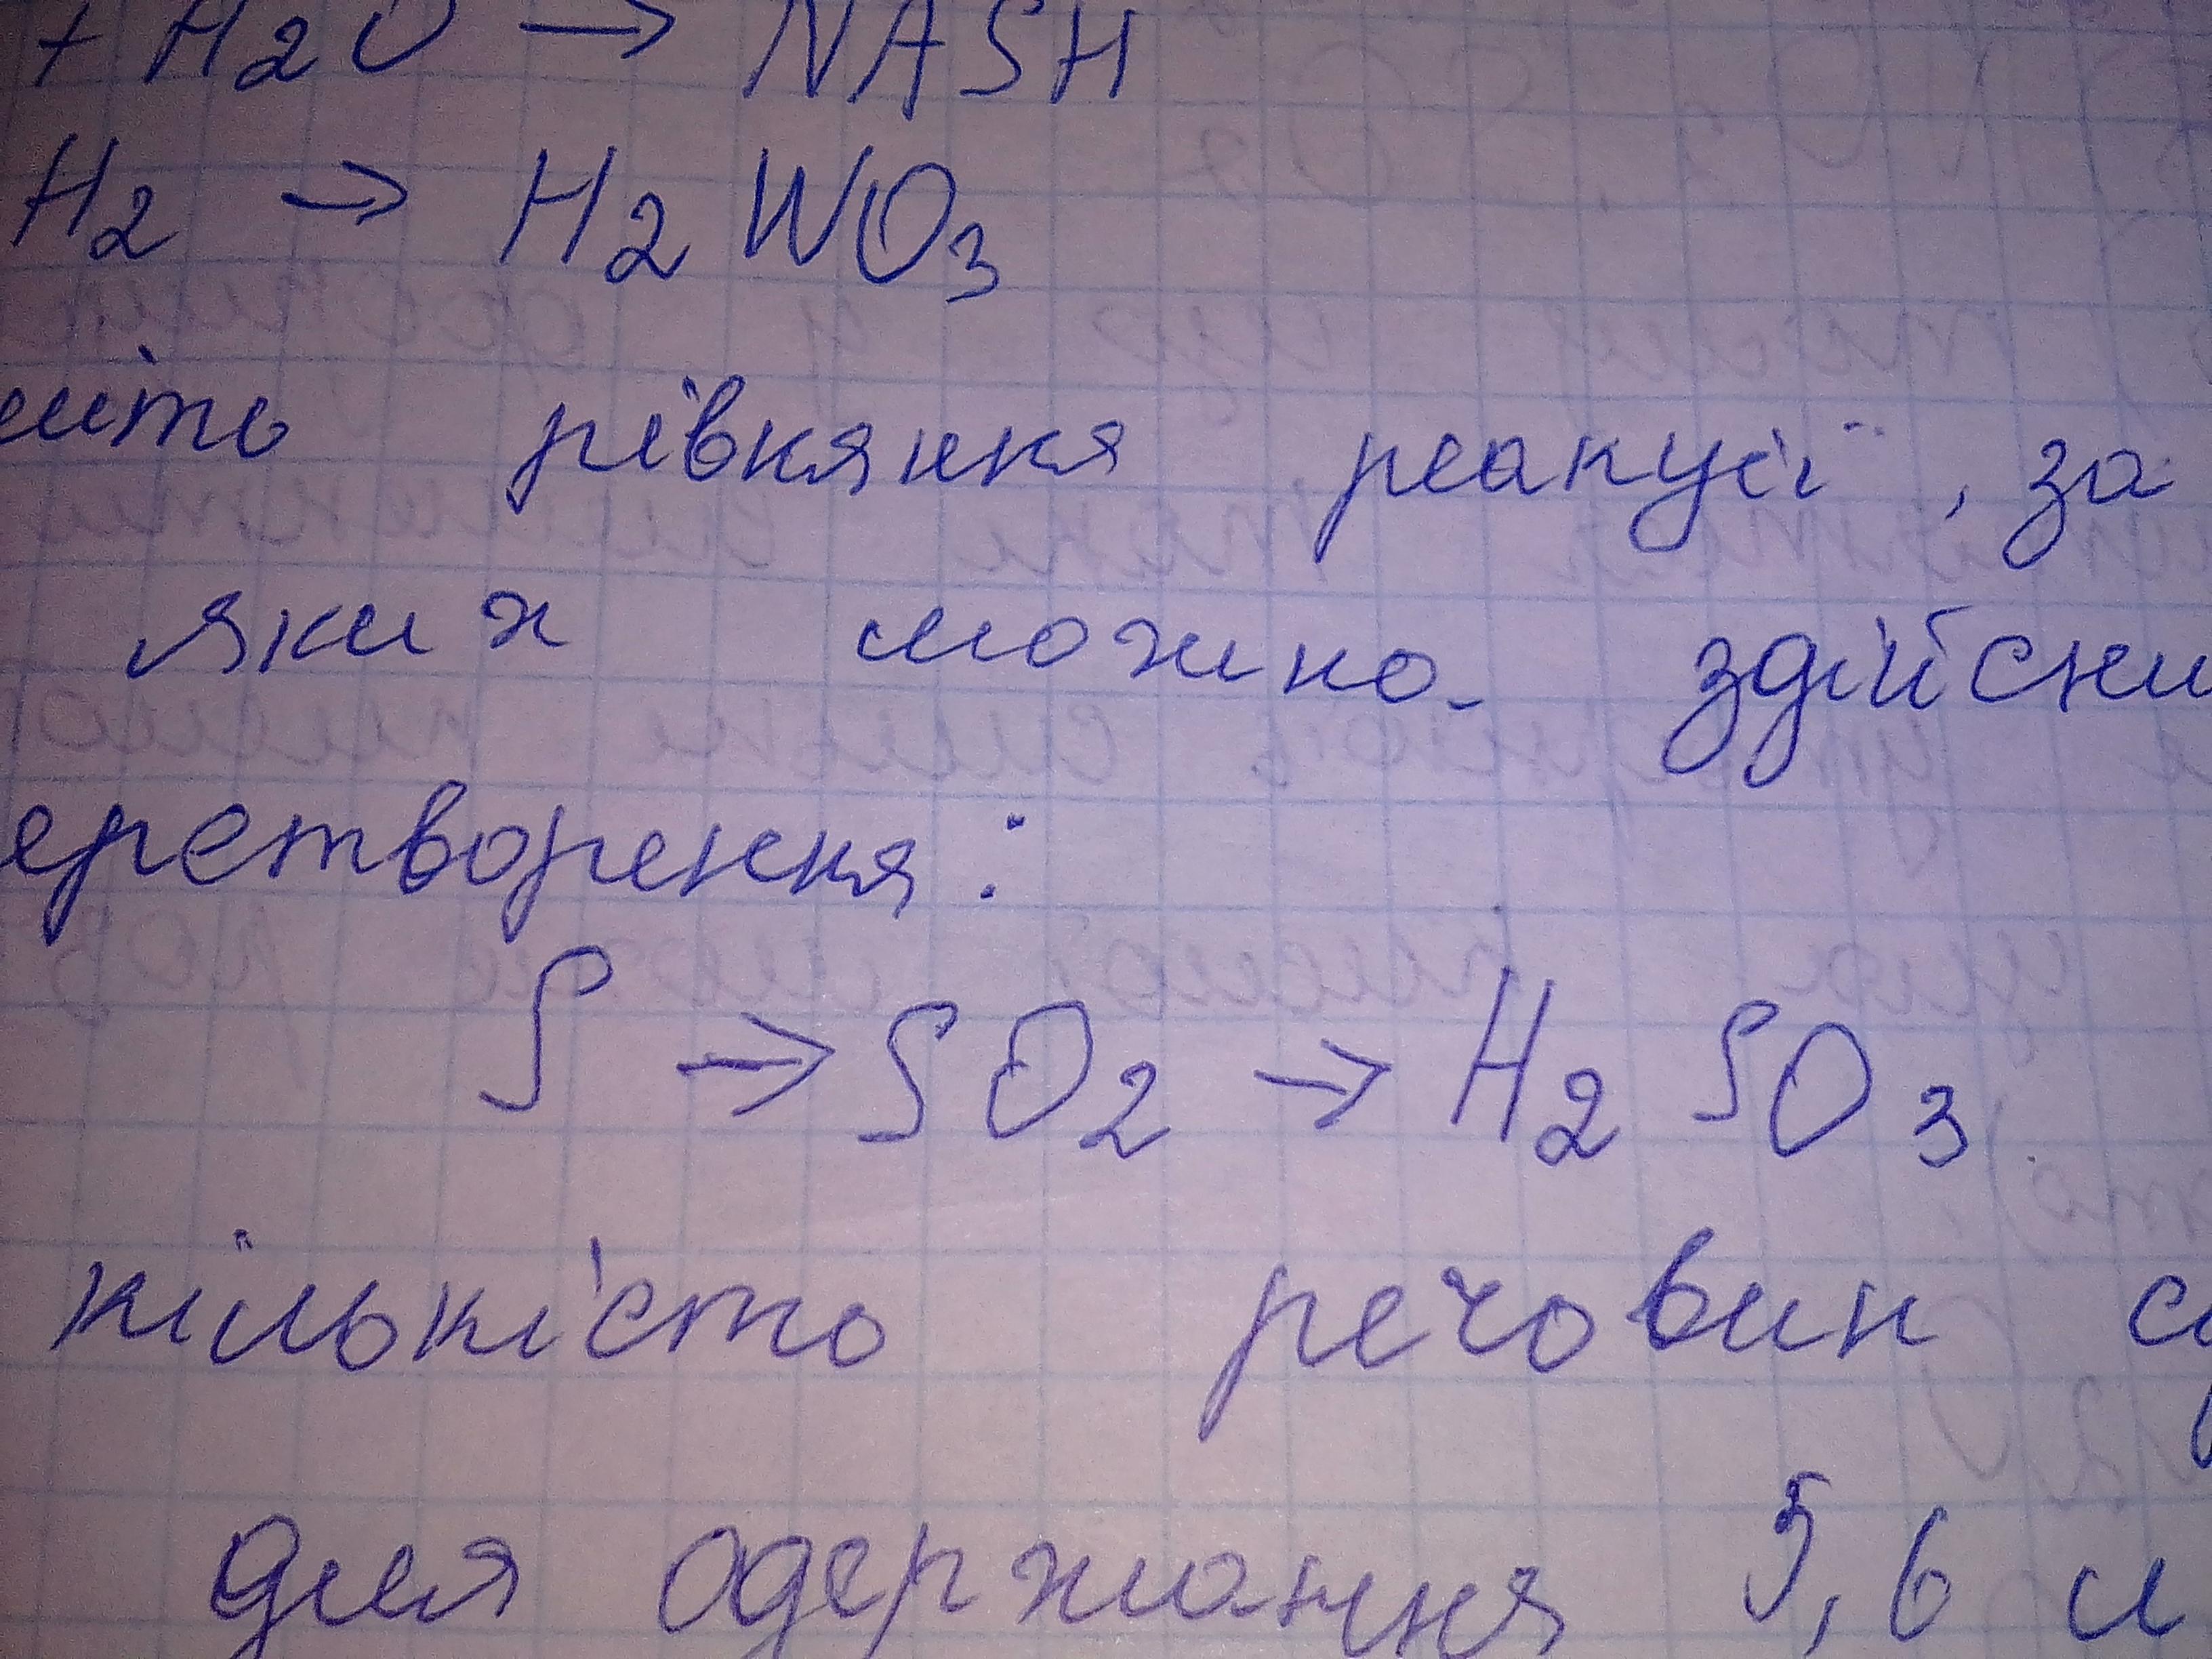 + H2O → NASH
H2 → H2WO3
рівняння реакцій, за
яких можно здійсни
еретворення:
S → SO2 → H2SO3
кількість речовин
для одержання 5,6 л